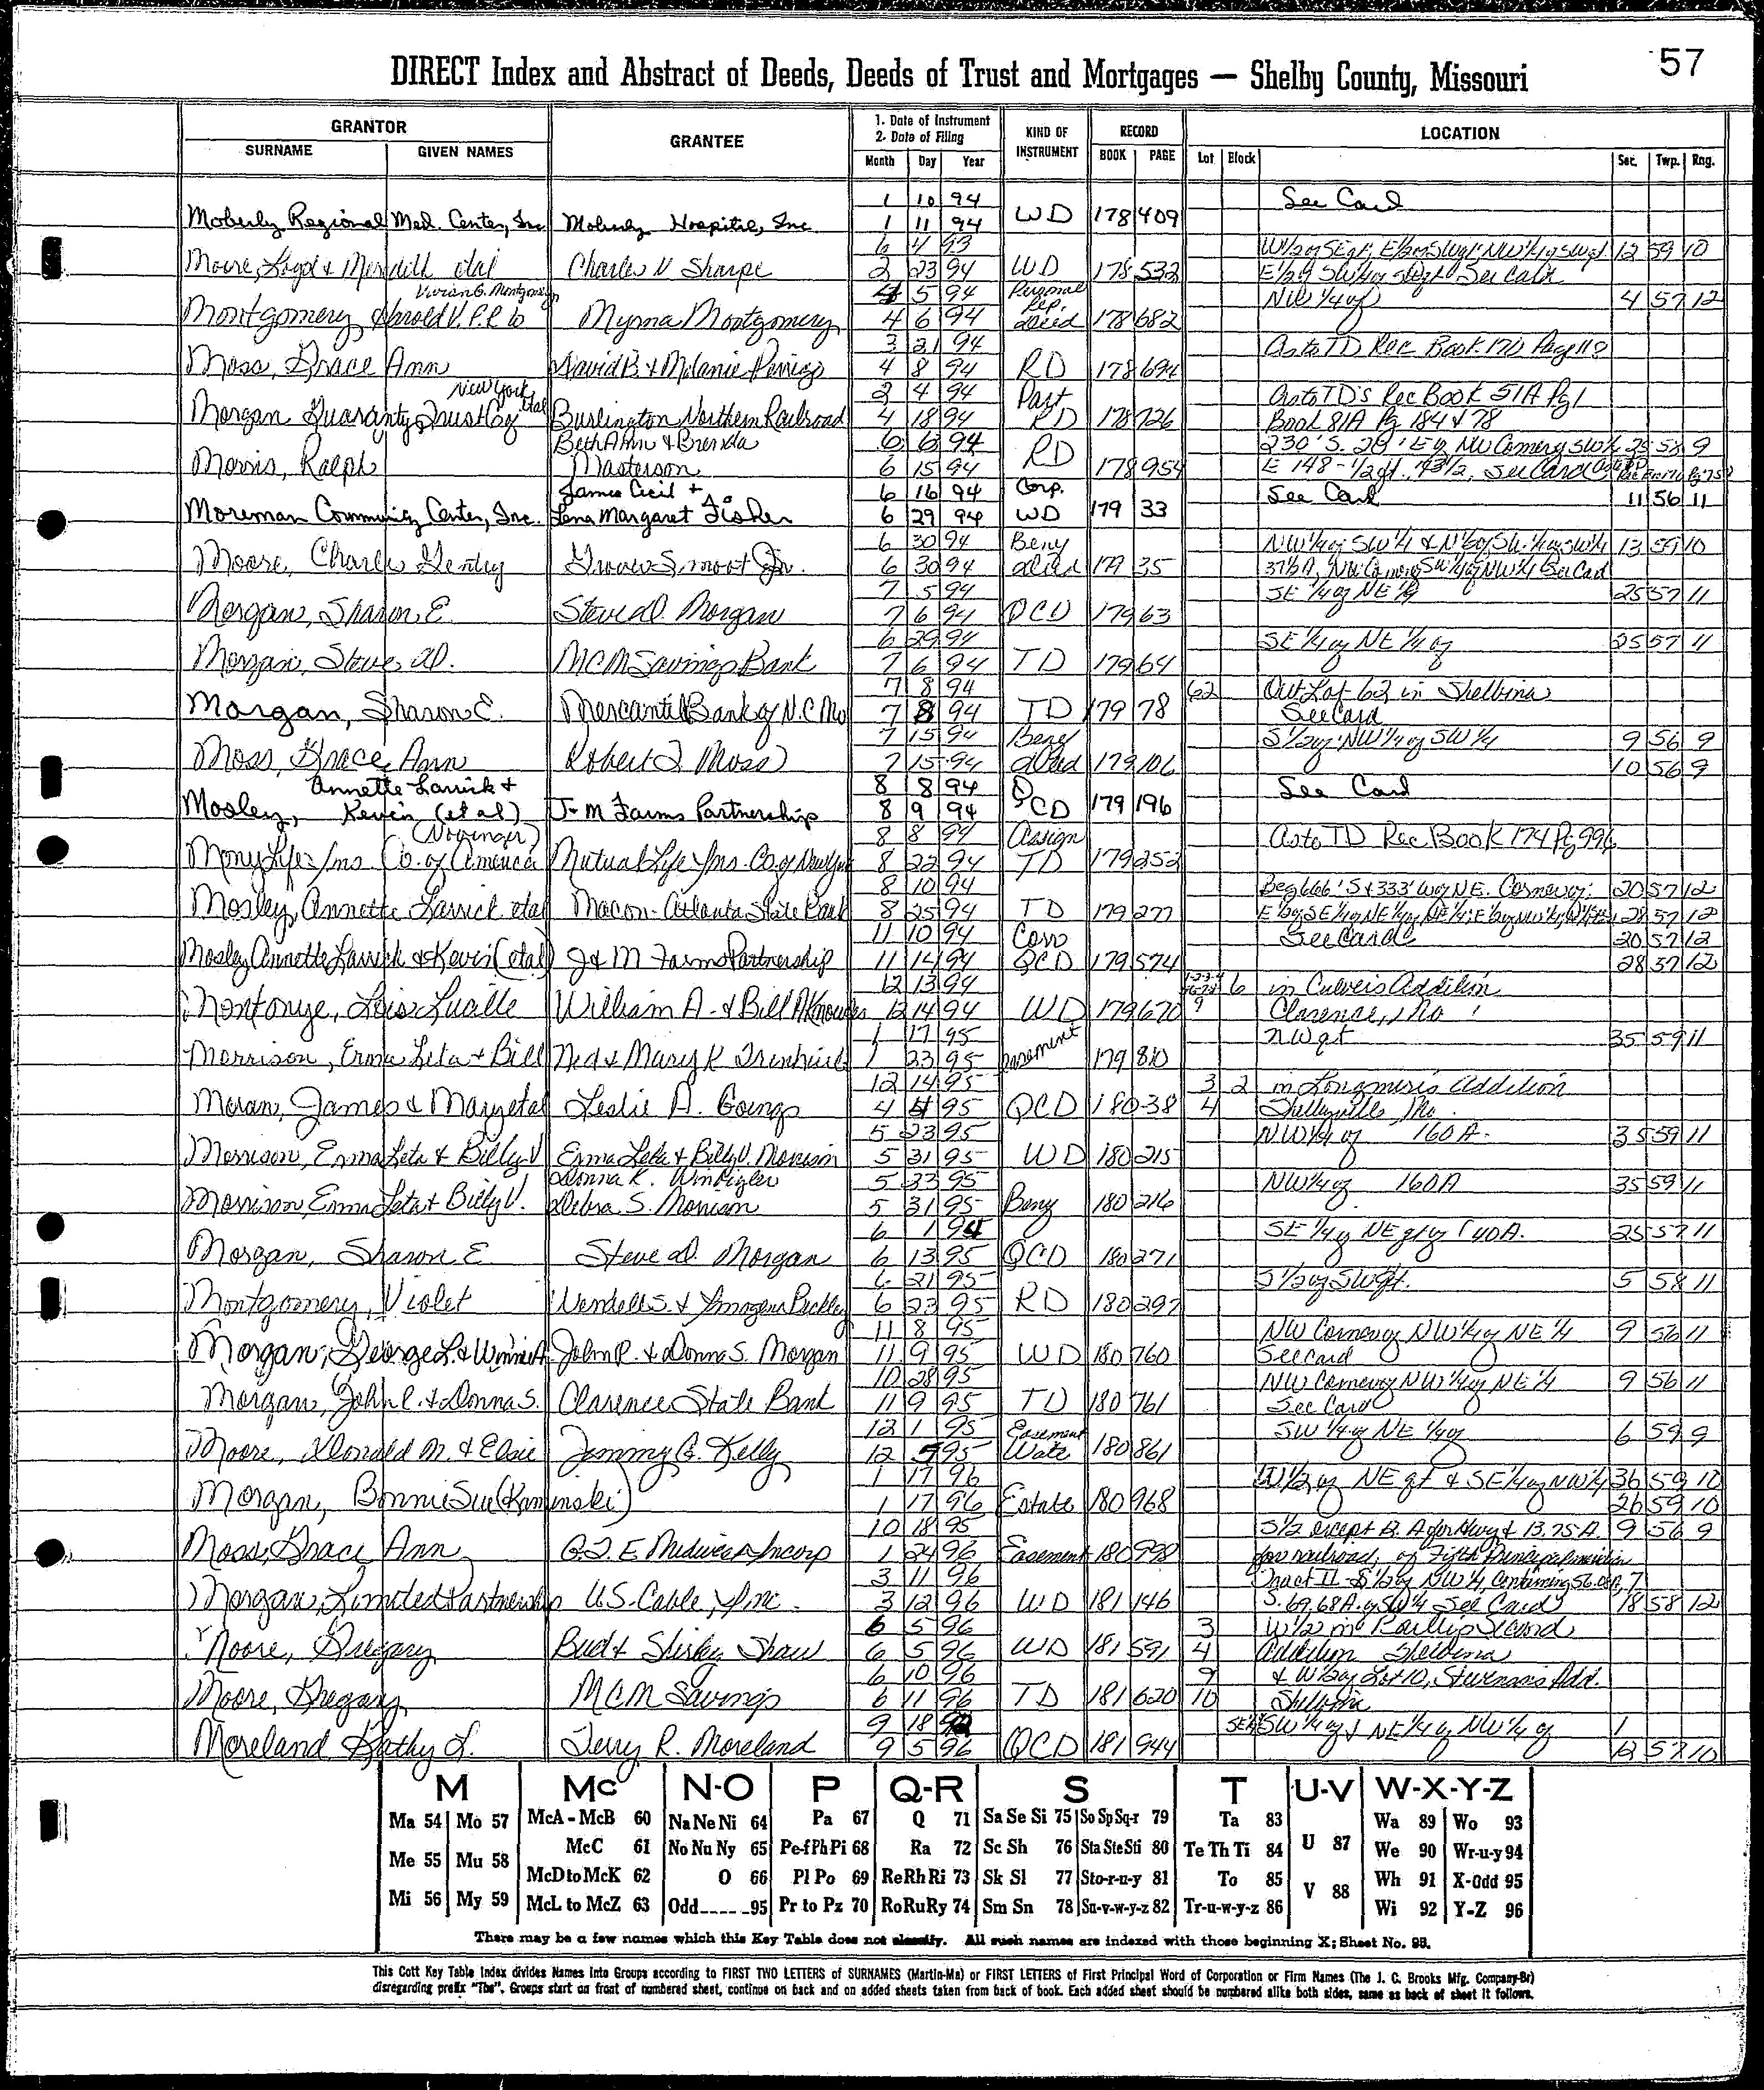 57
DIRECT Index and Abstract of Deeds, Deeds of Trust and Mortgages — Shelby County, Missouri
GRANTOR
SURNAME GIVEN NAMES
GRANTEE
1. Date of Instrument
2. Date of Filing
Month Day Year
KIND OF INSTRUMENT
RECORD
BOOK PAGE
LOCATION
Lot Block Sec. Twp. Rng.
1 10 94 See Card
Moberly Regional Med. Center, Inc Moberly Hospital, Inc. 1 11 94 WD 178 409
6 4 93 W1/2 of SE qt, E1/2 of SW qt, NW1/4 of SW qt 12 59 10
Moore, Loyd & Meridith etal Charles N Sharpe 2 23 94 WD 178 532 E1/2 of SW1/4 of See Card
Vivian G. Montgomery 4 5 94 Personal Rep. NW 1/4 of 4 57 12
Montgomery, Harold V. P.R. to Myrna Montgomery 4 6 94 Deed 178 682
3 21 94 As to TD Rec Book 170 Page 118
Moss, Grace Ann David B. & Melanie Perrigo 4 8 94 RD 178 694
New York 3 4 94 Part As to TD's Rec Book 51A Pg 1
Morgan Guaranty Trust Co of etal Burlington Northern Railroad 4 18 94 RD 178 726 Book 81A Pg 184 & 78
Beth Ann & Brenda 6 6 94 230' S. 28' E of NW Corner of SW1/4 25 58 9
Morris, Ralph Masterson 6 15 94 RD 178 954 E 148-1/2 ft. 43 1/2, See Card
James Cecil & 6 16 94 Corp. See Card 11 56 11
Moreman Community Center, Inc. Lena Margaret Fisher 6 29 94 WD 179 33
6 30 94 Beny NW 1/4 of SW 1/4 & N1/2 of SW 1/4 of SW1/4 13 59 10
Moore, Charles Henley Grover Smoot Jr. 6 30 94 Deed 179 35 37 1/2 A, NW Corner SW 1/4 of NW 1/4 See Card
7 5 94 SE 1/4 of NE 1/4 25 57 11
Morgan, Sharon, E. Steve D. Morgan 7 6 94 QCD 179 63
6 29 94 SE 1/4 of NE 1/4 of 25 57 11
Morgan, Steve D. MCM Savings Bank 7 6 94 TD 179 64
7 8 94 62 Out Lot 62 in Shelbina
Morgan, Sharon E. Mercantile Bank of N.C Mo 7 8 94 TD 179 78 See Card
7 15 94 Beny S 1/2 of NW 1/4 of SW 1/4 9 56 9
Moss, Grace Ann Robert I Moss 7 15 94 Deed 179 106 10 56 9
Annette Larrick & 8 8 94 See Card
Mosley, Kevin (et al) J-M Farms Partnership 8 9 94 QCD 179 196
(Novinger) 8 8 94 Assign As to TD Rec Book 174 Pg 996
Mony Life Ins. Co. of America Mutual Life Ins. Co. of New York 8 22 94 TD 179 252
8 10 94 Beg 666' S & 333' W of N.E. Corner of: 20 57 12
Mosley, Annette Larrick etal Macon-Atlanta State Bank 8 25 94 TD 179 277 28 57 12
11 10 94 Corr See Card 20 57 12
Mosley Annette Larrick & Kevin (etal) J & M Farms Partnership 11 14 94 QCD 179 574 28 57 12
12 13 94 6 in Culver's Addition
Montonye, Lois Lucille William A. & Bill A Knowles 12 14 94 WD 179 670 9 Clarence, Mo
1 17 95 NW qt 35 59 11
Morrison, Erma Leta & Bill Ned & Mary K 1 23 95 Easement 179 810
12 14 95 3 2 in Longmire's Addition
Moran, James & Mary etal Leslie A. Goings 4 4 95 QCD 180 38 4 Shelbyville, Mo.
5 23 95 NW 1/4 of 160 A. 35 59 11
Morrison, Erma Leta & Billy V Erma Leta & Billy V. Morrison 5 31 95 WD 180 215
Donna K. Winbigler 5 23 95 NW 1/4 of 160 A 35 59 11
Morrison Erma Leta & Billy V. Debra S. Morrison 5 31 95 Beny 180 216
6 1 94 SE 1/4 of NE qt of 40 A. 25 57 11
Morgan, Sharon E. Steve D. Morgan 6 13 95 QCD 180 271
6 21 95 S 1/2 of SW qt. 5 58 11
Montgomery, Violet Wendell S. & Imogene Buckley 6 23 95 RD 180 297
11 8 95 NW Corner of NW 1/4 of NE 1/4 9 56 11
Morgan, George L. & Winnie A John P. & Donna S. Morgan 11 9 95 WD 180 760 See Card
10 28 95 NW Corner of NW 1/4 of NE 1/4 9 56 11
Morgan, John P. & Donna S. Clarence State Bank 11 9 95 TD 180 761 See Card
12 1 95 Easement SW 1/4 of NE 1/4 of 6 59 9
Moore, Donald M. & Elsie Jimmy G. Kelly 12 5 95 Water 180 861
1 17 96 W 1/2 of NE qt & SE 1/4 of NW 1/4 36 59 10
Morgan, Bonnie Sue (Kaminski) 1 17 96 Estate 180 968 26 59 10
10 18 95 S 1/2 except 13. A for Hwy & 13.75 A. 9 56 9
Moss, Grace Ann 1 24 96 Easement 180 990 for railroad, of Fifth Principal meridian
3 11 96 Tract II - S 1/2 of NW 1/4, Containing 56.08 A, 7
Morgan, Limited Partnership U.S. Cable, Inc. 3 12 96 WD 181 146 S. 69.68 A. of SW 1/4 See Card 18 58 12
6 5 96 3 W 1/2 in Phillip's Second
Moore, Gregory Bud & Shirley Shaw 6 5 96 WD 181 591 4 Addition Shelbina
6 10 96 9 & W 1/2 of Lot 10, Stevenson's Add.
Moore, Gregory MCM Savings 6 11 96 TD 181 620 10 Shelbina
9 18 SW 1/4 of & NE 1/4 of NW 1/4 of 1
Moreland Kathy L. Terry R. Moreland 9 5 96 QCD 181 944 12 57 10
M Mc N-O P Q-R S T U-V W-X-Y-Z
Ma 54 Mo 57 McA - McB 60 Na Ne Ni 64 Pa 67 Q 71 Sa Se Si 75 So Sp Sq-r 79 Ta 83 Wa 89 Wo 93
Me 55 Mu 58 McC 61 No Nu Ny 65 Pe-f Ph Pi 68 Ra 72 Sc Sh 76 Sta Ste Sti 80 Te Th Ti 84 U 87 We 90 Wr-u-y 94
McD to McK 62 O 66 Pl Po 69 Re Rh Ri 73 Sk Sl 77 Sto-r-u-y 81 To 85 V 88 Wh 91 X-Odd 95
Mi 56 My 59 McL to McZ 63 Odd 95 Pr to Pz 70 Ro Ru Ry 74 Sm Sn 78 Su-v-w-y-z 82 Tr-u-w-y-z 86 Wi 92 Y-Z 96
There may be a few names which this Key Table does not classify. All such names are indexed with those beginning X; Sheet No. 95.
This Cott Key Table Index divides Names into Groups according to FIRST TWO LETTERS of SURNAMES (Martin-Ma) or FIRST LETTERS of First Principal Word of Corporation or Firm Names (The J. C. Brooks Mfg. Company-Br)
disregarding prefix "The". Groups start on front of numbered sheet, continue on back and on added sheets taken from back of book. Each added sheet should be numbered alike both sides, same as back of sheet it follows.